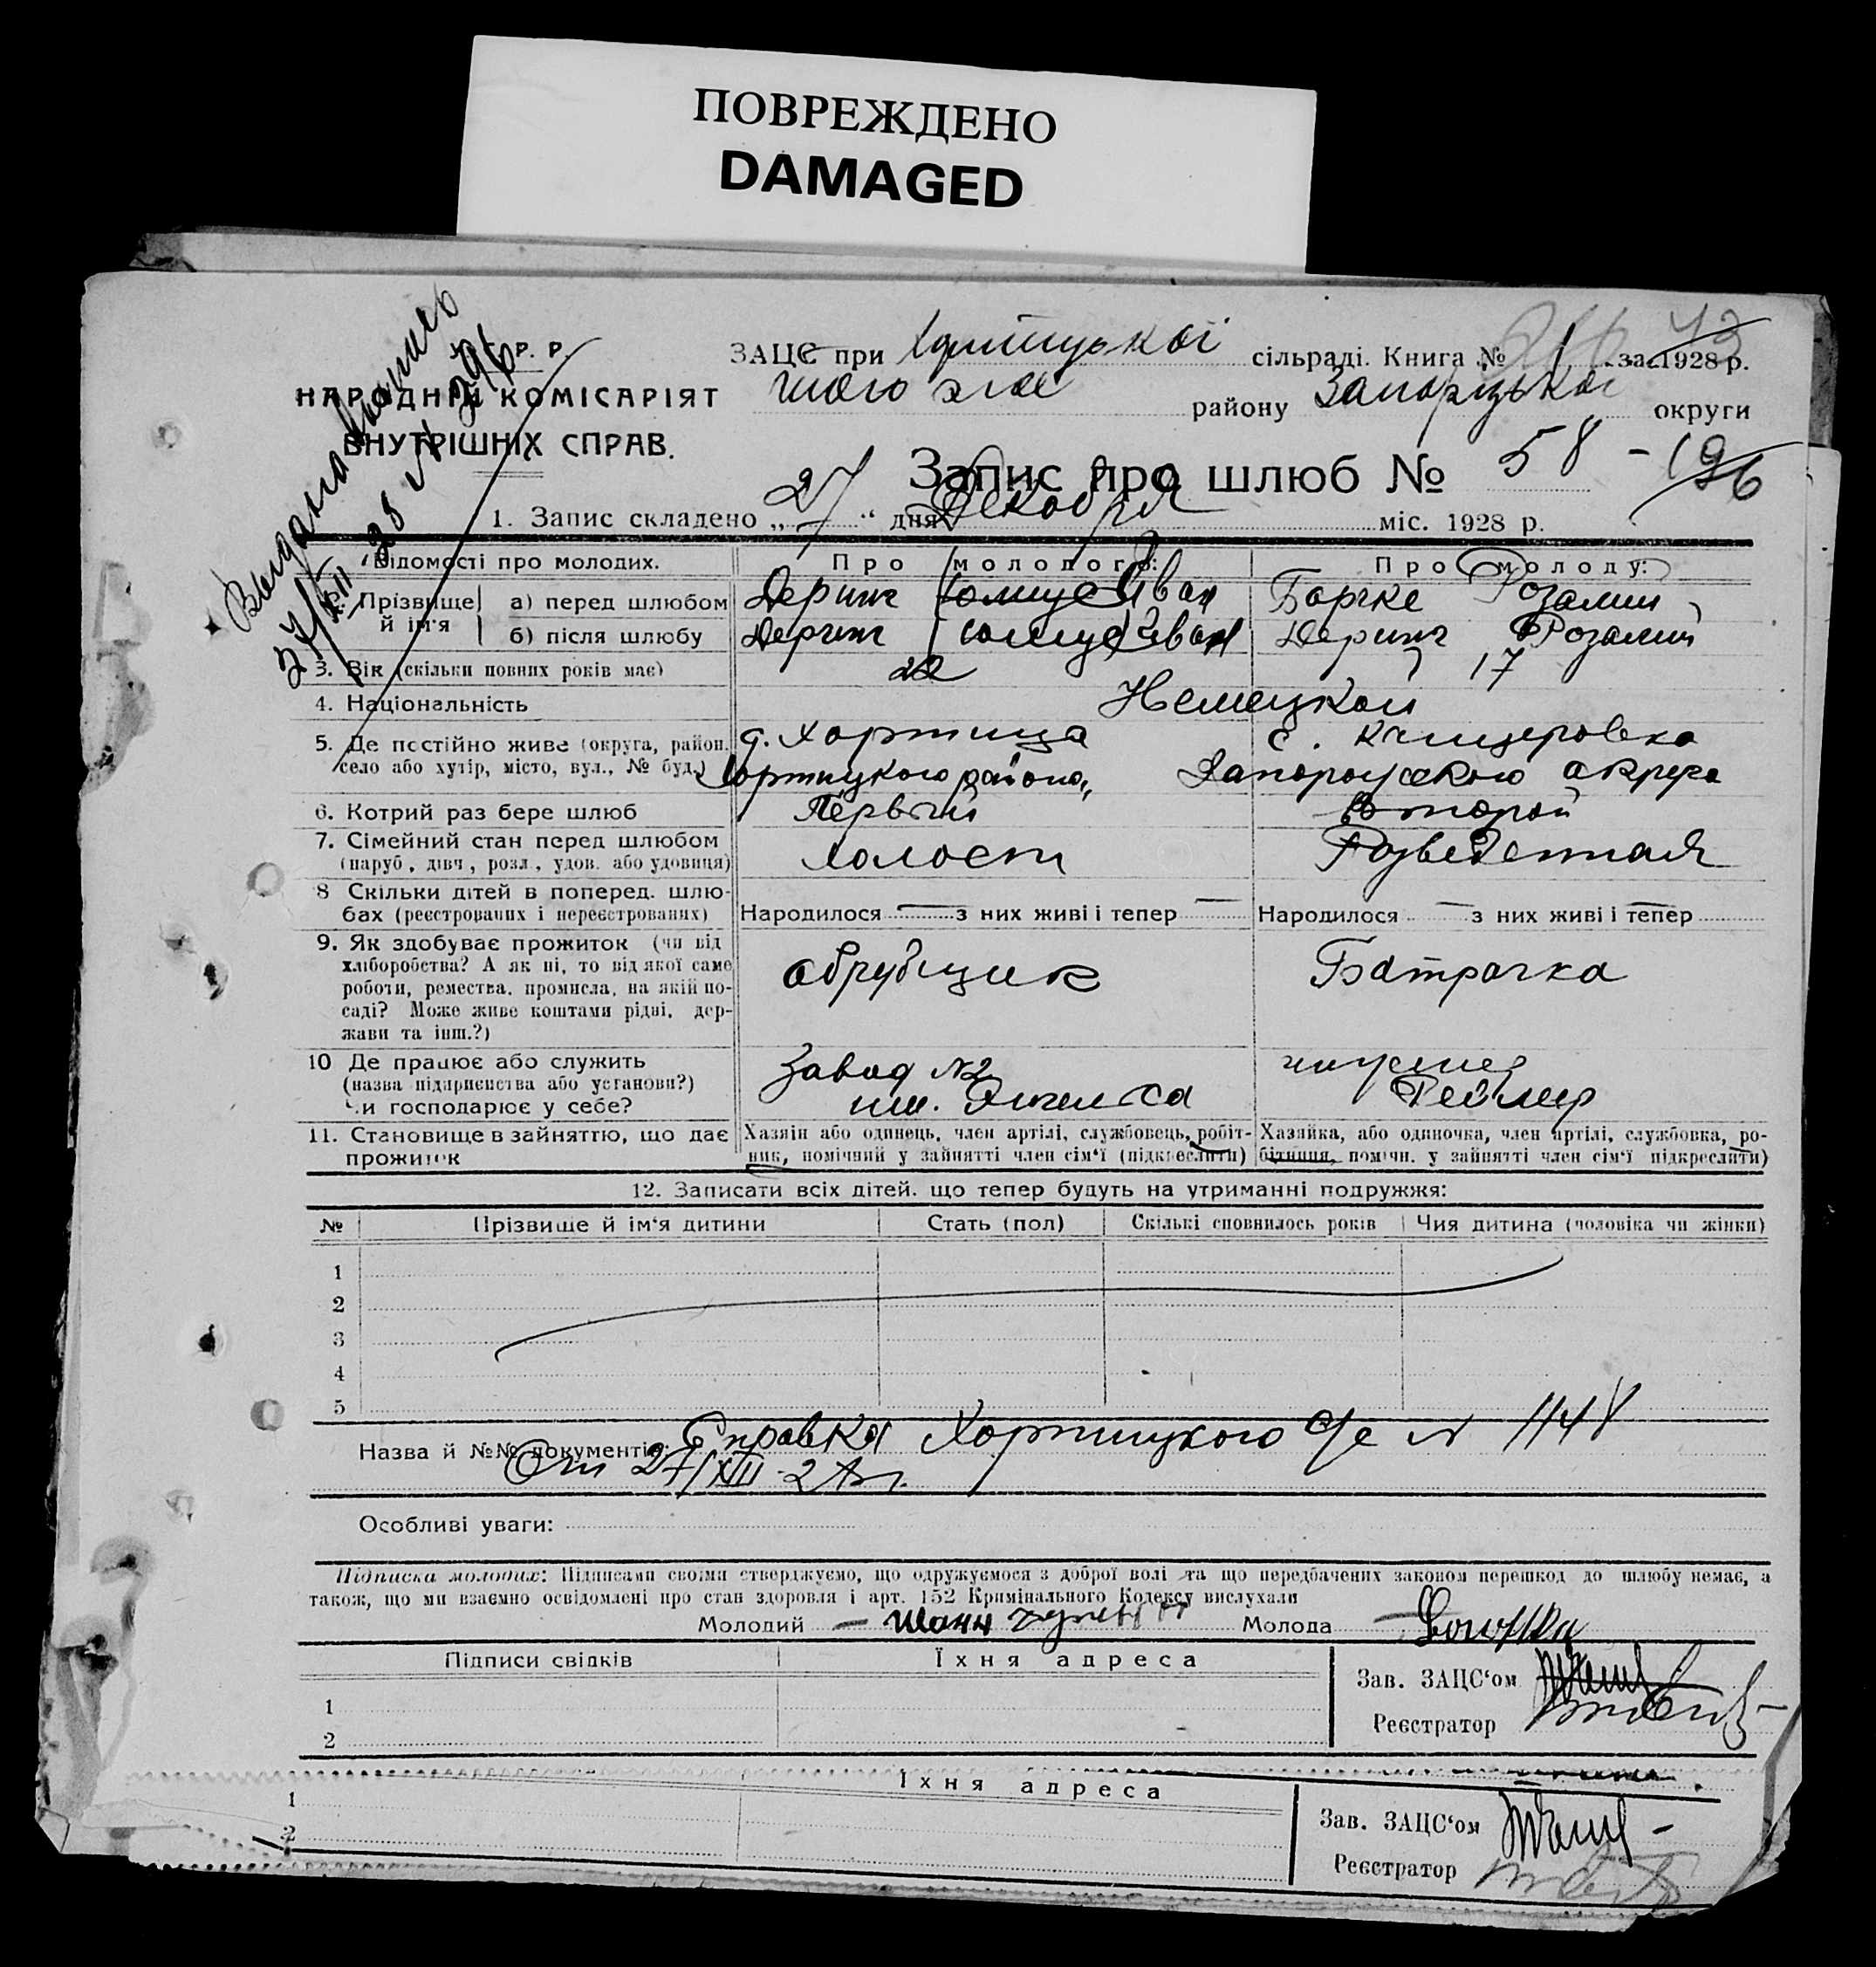 ПОВРЕЖДЕНО
DAMAGED
С. Р. Р.
НАРОДНІЙ КОМІСАРІЯТ
ВНУТРІШНІХ СПРАВ.
27/XII 28 № 296
ЗАЦС при Хортицької сільраді. Книга № 1 за 1928 р.
того же району Запорізької округи
Запис про шлюб № 58 - 196
1. Запис складено „ 27 “ дня Декабря міс. 1928 р.
Відомості про молодих. Про молодого: Про молоду:
2. Прізвище й ім'я а) перед шлюбом Деринг Иван Розалии
б) після шлюбу Деринг Иван Деринг Розалии
3. Вік (скільки повних років має) 22 17
4. Національність Немецкой
5. Де постійно живе (округа, район, с. Хортица с.
село або хутір, місто, вул., № буд.) Хортицкого района Запорожского округа
6. Котрий раз бере шлюб Первый Второй
7. Сімейний стан перед шлюбом Холост Розведенная
(паруб., дівч., розл., удов. або удовиця)
8 Скільки дітей в поперед. шлю-
бах (реєстрованих і нереєстрованих) Народилося — з них живі і тепер — Народилося — з них живі і тепер —
9. Як здобуває прожиток (чи від
хліборобства? А як ні, то від якої саме обрубщик Батрачка
роботи, ремества, промисла, на якій по-
саді? Може живе коштами рідні, дер-
жави та інш.?)
10 Де працює або служить Завод №2
(назва підприємства або установи?) им. Энгельса
Чи господарює у себе?
11. Становище в зайняттю, що дає Хазяін або одинець, член артілі, службовець, робіт- Хазяйка, або одиночка, член артілі, службовка, ро-
прожиток ник, помічний у зайнятті член сім'ї (підкреслити) бітниця, помічн. у зайнятті член сім'ї підкреслити)
12. Записати всіх дітей. що тепер будуть на утриманні подружжя:
№ Прізвище й ім'я дитини Стать (пол) Скількі сповнилось років Чия дитина (чоловіка чи жінки)
1
2
3
4
5
Назва й №№ документів: Справка Хортицкого с/с № 1148
От 27/XII-28 г.
Особливі уваги:
Підписка молодих: Підписами своїми стверджуємо, що одружуємося з доброї волі та що передбачених законом перешкод до шлюбу немає, а
також, що ми взаємно освідомлені про стан здоровля і арт. 152 Кримінального Кодексу вислухали
Молодий Молода
Підписи свідків Їхня адреса Зав. ЗАЦС'ом
1
2 Реєстратор
Їхня адреса
1 Зав. ЗАЦС'ом
2 Реєстратор